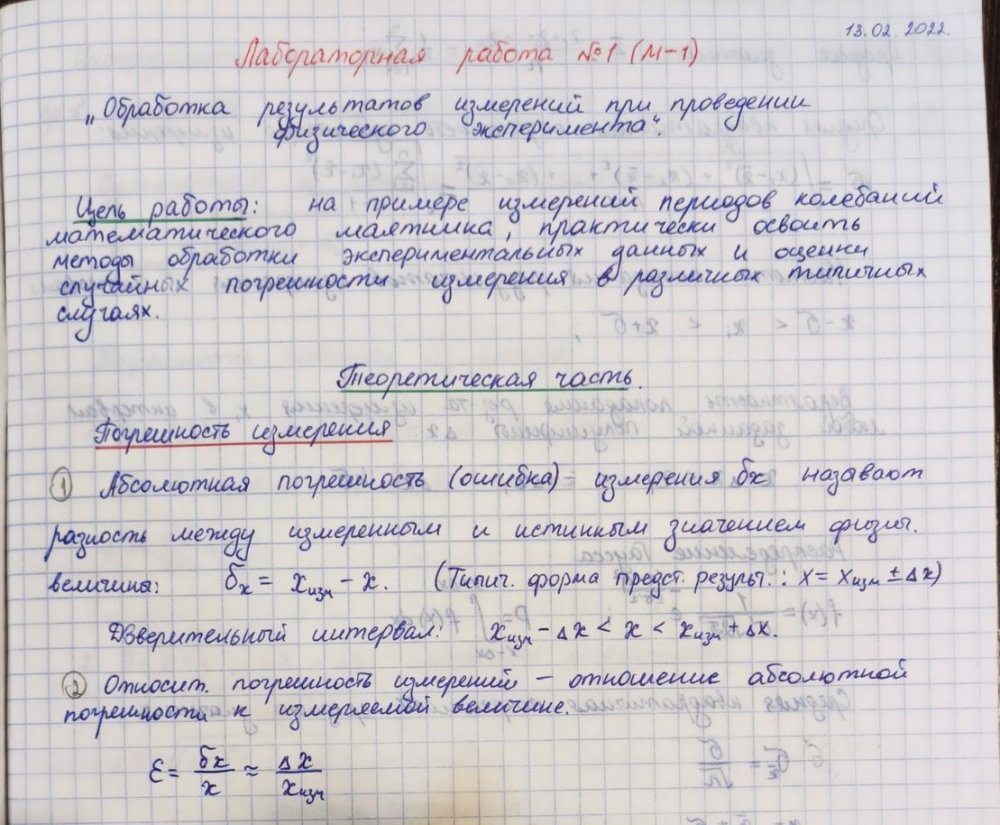 13.02.2022.
Лабораторная работа №1 (М-1)
„Обработка результатов измерений при проведении
физического эксперимента“.
Цель работы: на примере измерений периодов колебаний
математического маятника, практически освоить
методы обработки экспериментальных данных и оценки
случайных погрешности измерения в различных типичных
случаях.
Теоретическая часть.
Погрешность измерения
① Абсолютная погрешность (ошибка) измерения δx назавают
разность между измеренным и истинным значением физич.
величины: δx = xизм - x. (Типич. форма предст. результ.: x = xизм ± Δx)
Доверительный интервал: xизм - Δx < x < xизм + Δx.
② Относит. погрешность измерений – отношение абсолютной
погрешности к измеряемой величине.
ε = δx/x ≈ Δx/xизм